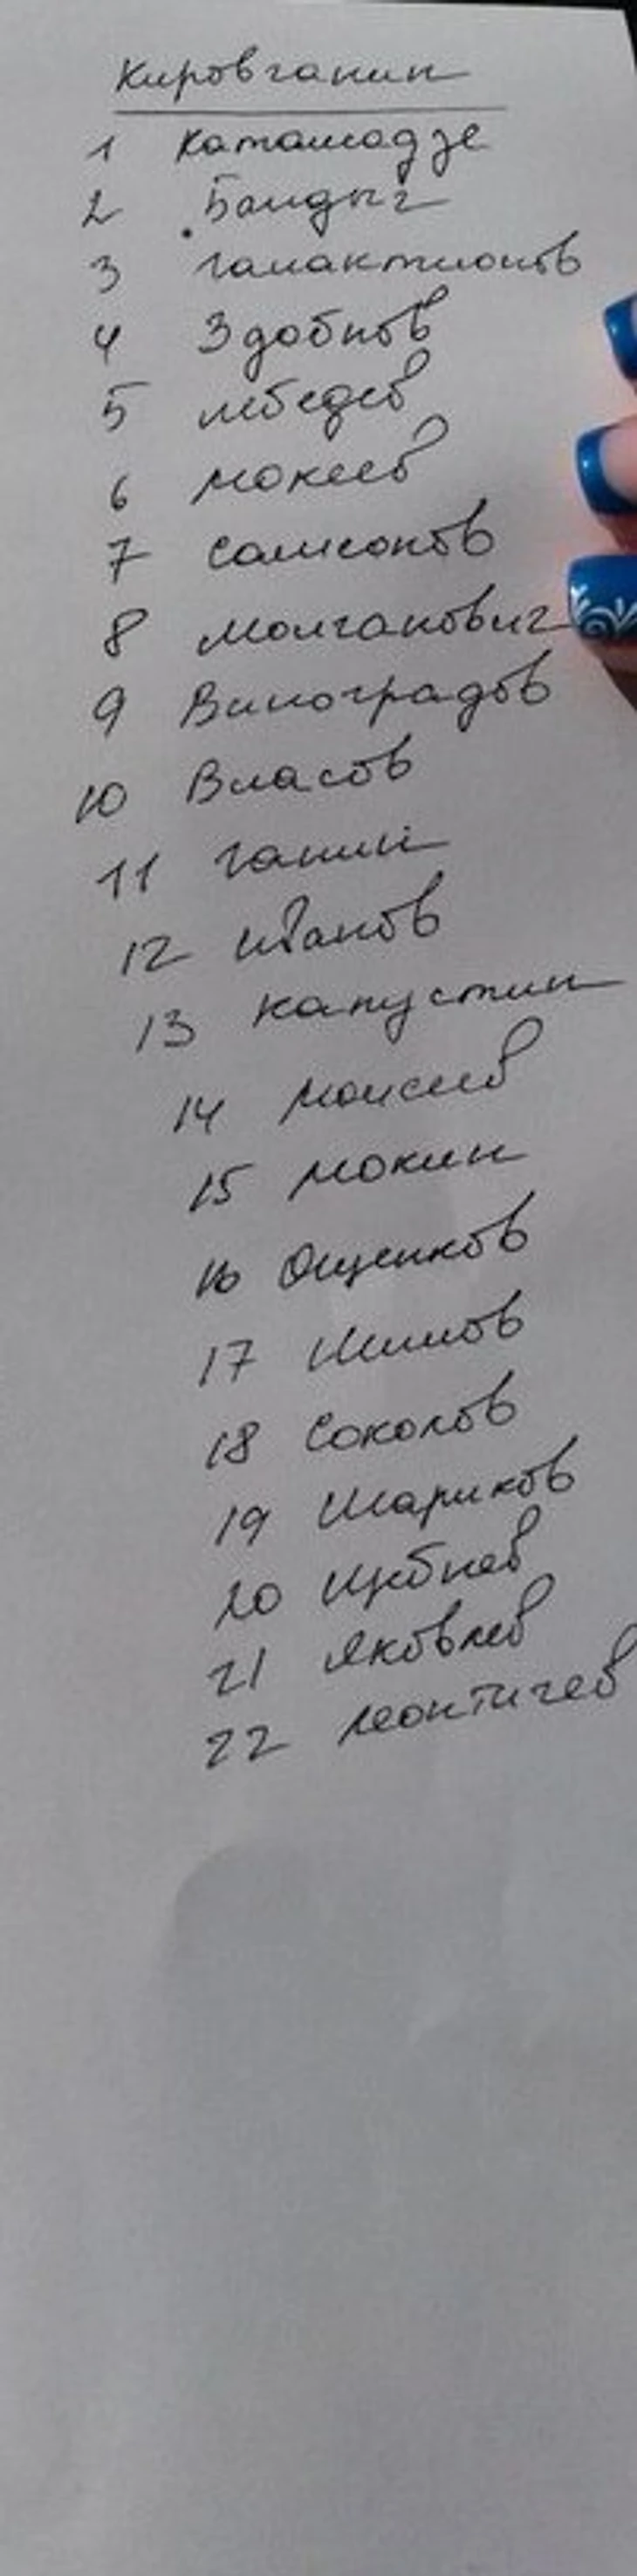 Кировчанин
1 Каташадзе
2 Бандыч
3 Галактионов
4 Здобнов
5 Лебедев
6 Мокеев
7 Самсонов
8 Молчанович
9 Виноградов
10 Власов
11 Ганин
12 Иванов
13 Капустин
14 Моисеев
15 Мокин
16 Ощепков
17
18 Соколов
19 Шариков
20
21 Яковлев
22 Леонтичев